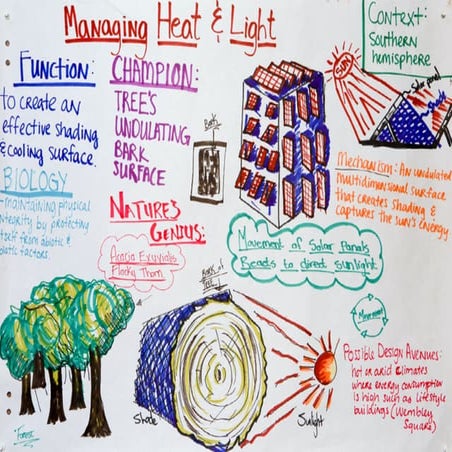 Managing Heat & Light
Context:
Southern
hemisphere
Function:
to create an
effective shading
& cooling surface.
CHAMPION:
TREE'S
UNDULATING
BARK
SURFACE
BIOLOGY
maintaining physical
integrity by protecting
itself from abiotic &
biotic factors.
NATURE'S
GENIUS:
Acacia Exuvialis
Flaky Thorn
Bark
SUN
Solar panel
Shade
Mechanism: An undulated
multidimensional surface
that creates shading &
captures the sun's energy
Movement of Solar Panels
Reacts to direct sunlight
Movement
BARK OF
TREE
Possible Design Avenues:
hot or arid climates
where energy consumption
is high such as lifestyle
buildings (Wembley
Square)
Shade
Sunlight
Forest